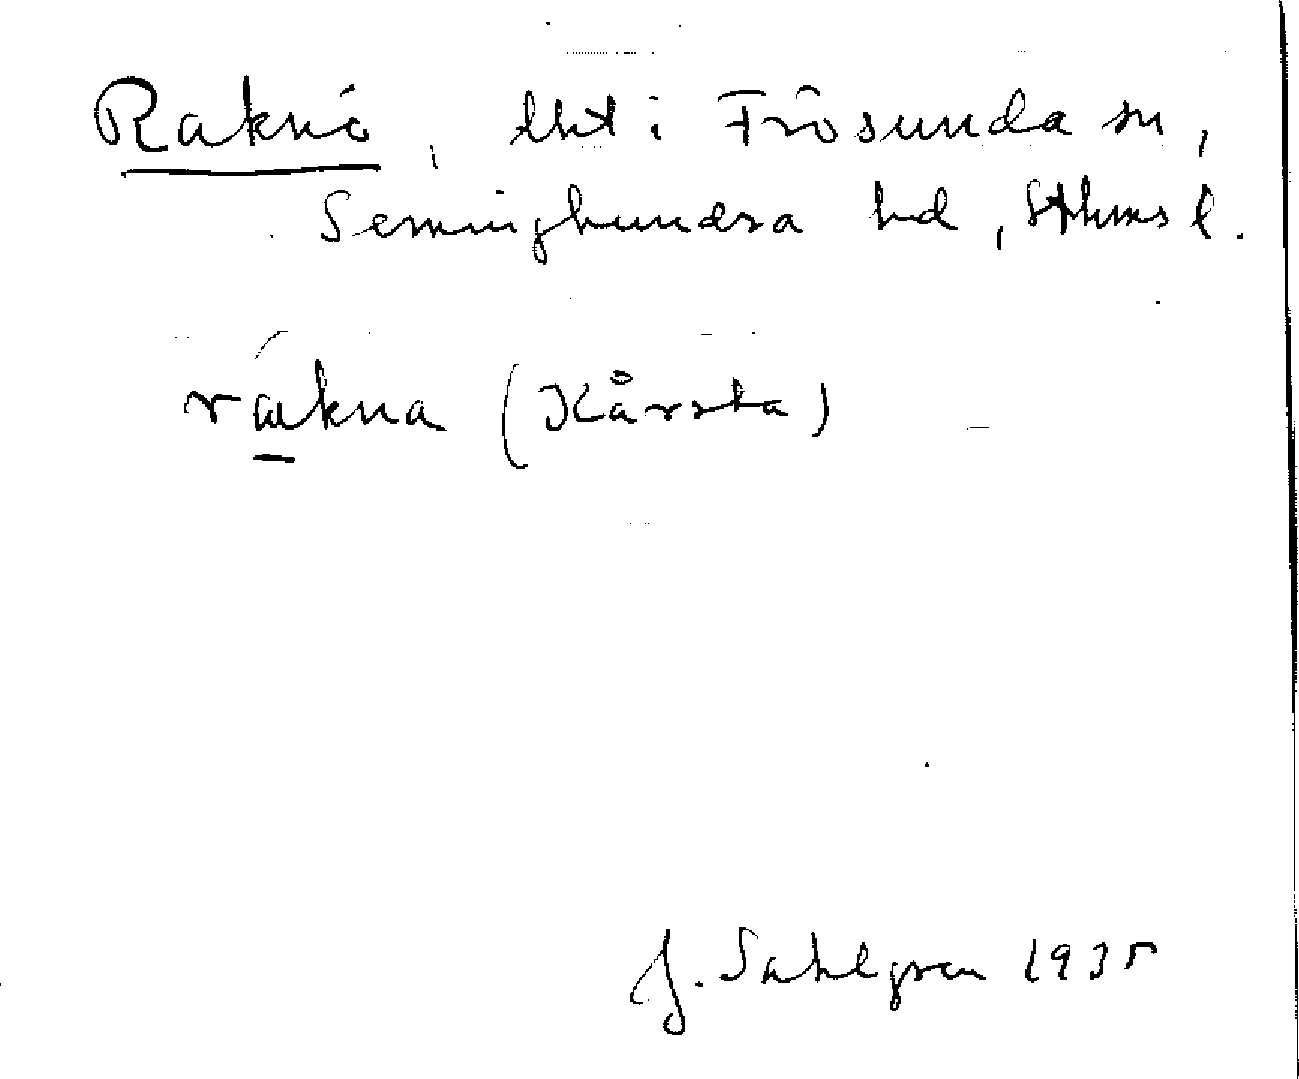 Raknö, tht i Frösunda sn,
Seminghundra hd, Sthms l.
rakna (Kårsta)
J. Sahlgren 1935